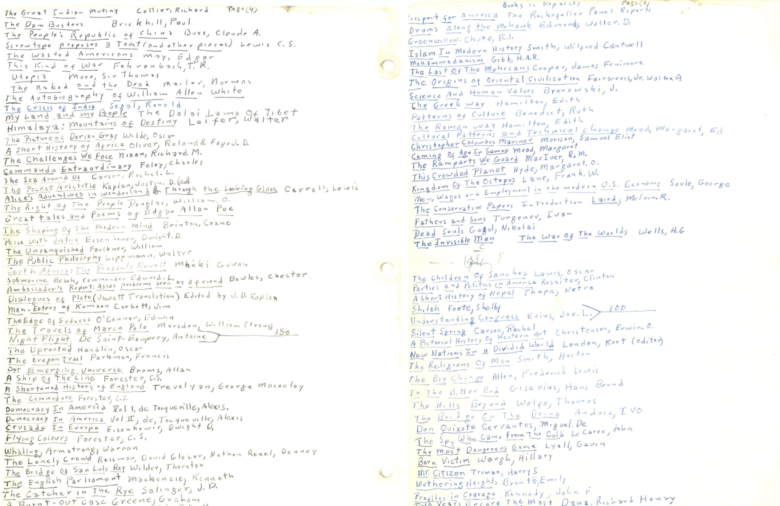 The Great Indian Mutiny Collier, Richard Page(4)
The Dam Busters Brickhill, Paul
The People's Republic of China Buss, Claude A.
Screwtape Proposes a Toast (and other pieces) Lewis C.S.
The Wasted Americans May, Edgar
This Kind of War Fehrenbach, T.R.
Utopia More, Sir Thomas
The Naked and the Dead Mailer, Norman
The Autobiography of William Allen White
The Crisis of India Segal, Ronald
My Land and my People The Dalai Lama of Tibet
Himalaya: Mountains of Destiny Leifer, Walter
The Picture of Dorian Gray Wilde, Oscar
A Short History of Africa Oliver, Roland & Fage J.D.
The Challenges We Face Nixon, Richard M.
Commando Extraordinary Foley, Charles
The Sea Around Us Carson, Rachel L.
The Pocket Aristotle Kaplan, Justin D.
Alice's Adventures in Wonderland & Through the Looking Glass Carroll, Lewis
The Right of The People Douglas, William O.
Great tales and Poems of Edgar Allan Poe
The Shaping Of The Modern Mind Brinton, Crane
Eisenhower, Dwight D.
The Unvanquished Faulkner, William
The Public Philosophy Lippmann, Walter
Submarine Beach, Commander Edward L.
Ambassador's Report: Asian problems seen by a friend Bowles, Chester
Dialogues of Plato (Jowett Translation) Edited by J.D. Kaplan
Man-Eaters of Kumaon Corbett, Jim
The Edge of Sadness O'Connor, Edwin
The Travels of Marco Polo Marsden, William (trans)
Night Flight De Saint-Exupery, Antoine 150
The Uprooted Handlin, Oscar
The Oregon Trail Parkman, Francis
Our Emerging Universe Broms, Allan
A Ship Of The Line Forester, C.S.
A Shortened History of England Trevelyan, George Macaulay
The Commodore Forester, C.S.
Democracy In America Vol I, de Tocqueville, Alexis.
Democracy In America Vol II, de Tocqueville, Alexis
Crusade In Europe Eisenhower, Dwight D.
Flying Colours Forester, C.S.
Whaling Armstrong, Warren
The Lonely Crowd Reisman, David Glazer, Nathan Reuel, Denney
The Bridge Of San Luis Rey Wilder, Thornton
The English Parliament Mackenzie, Kenneth
The Catcher in The Rye Salinger, J.D.
A Burnt-Out Case Greene, Graham
Books in Reports Page(3)
Prospect for America The Rockefeller Panel Reports
Drums Along the Mohawk Edmonds, Walter D.
Greenwillow Chute, B.J.
Islam In Modern History Smith, Wilfred Cantwell
Mohammedanism Gibb, H.A.R.
The Last Of The Mohicans Cooper, James Fenimore
The Origins of Oriental Civilization Fairservis, Jr. Walter A
Science And Human Values Bronowski, J.
The Greek Way Hamilton, Edith
Patterns of Culture Benedict, Ruth
The Roman Way Hamilton, Edith
Cultural Patterns and Technical Change Mead, Margaret, Ed
Christopher Columbus Mariner Morison, Samuel Eliot
Coming Of Age In Samoa Mead, Margaret
The Ramparts We Guard MacIver, R.M.
This Crowded Planet Hyde, Margaret O.
Kingdom Of The Octopus Lane, Frank W.
Men, Wages and Employment in the modern U.S. Economy Soule, George
The Conservative Papers Introduction Laird, Melvin R.
Fathers and Sons Turgenev, Ivan
Dead Souls Gogol, Nikolai
The Invisible Man The War Of The Worlds Wells, H.G
The Children Of Sanchez Lewis, Oscar
Parties and Politics in America Rossiter, Clinton
A Short History of Nepal Thapa, Netra
Shiloh Foote, Shelby
Understanding Congress Evins, Joe L. 100
Silent Spring Carson, Rachel
A Pictorial History Of Western Art Christensen, Erwin O.
New Nations In a Divided World London, Kurt (editor)
The Religions Of Man Smith, Huston
The Big Change Allen, Frederick Lewis
To The Bitter End Gisevius, Hans Bernd
The Hills Beyond Wolfe, Thomas
The Bridge On The Drina Andric, IVO
Don Quixote Cervantes, Miguel De
The Spy Who Came From The Cold Le Carre, John
The Most Dangerous Game Lyall, Gavin
Born Victim Waugh, Hillary
Mr. Citizen Truman, Harry S
Wuthering Heights Bronte, Emily
Profiles in Courage Kennedy, John F
Two Years Before The Mast Dana, Richard Henry